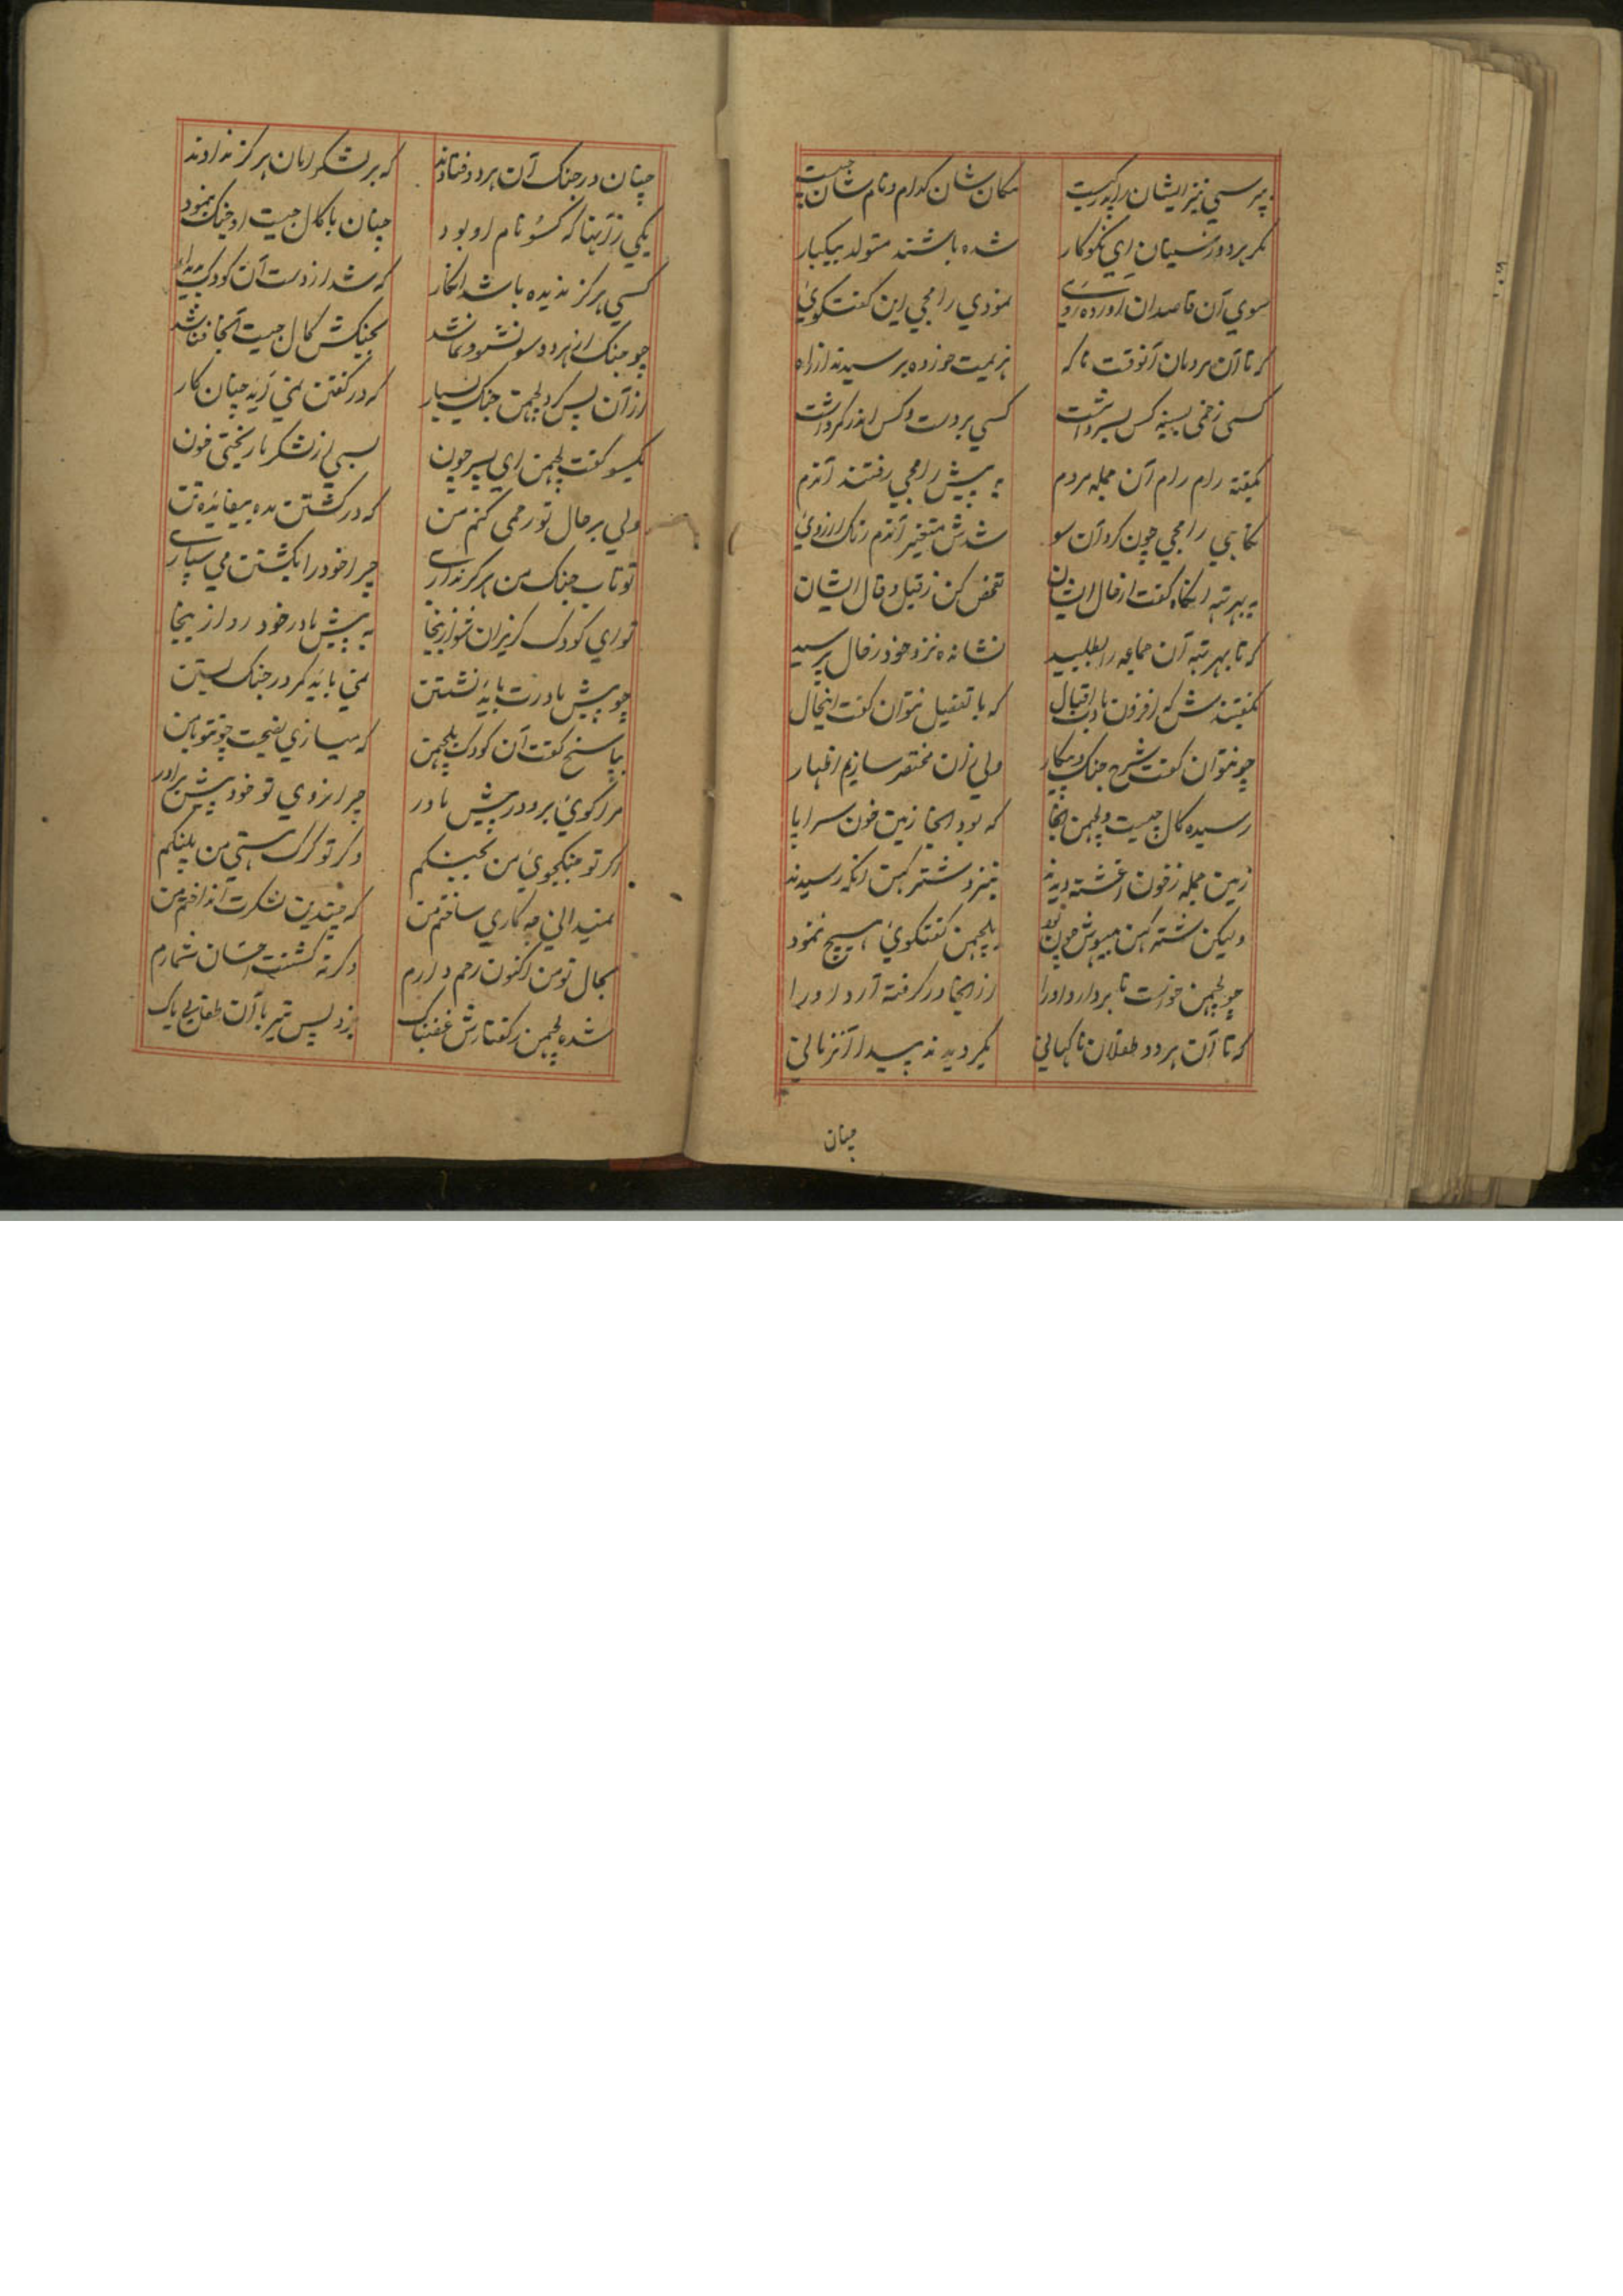 بپرسی نیز ایشان را پدر کیست
مکان شان کدام و نام شان چیست
مگر هر دو ز سیتان ای نکوکار
شده باشند متولد بیکبار
سوی آن قاصدان آورده روی
نمودی رامجی این گفت کوی
که تا آن مردمان آنوقت ناکه
هزیمت خورده برسیدند از راه
کسی زخمی بسینه کس بسر داشت
کسی بر دست و کس اندر کمر داشت
بگفته رام رام آن جمله مردم
به پیش رامجی رفتند آندم
نگاهی رامجی چون کرد آن سو
شدش متغیر آندم رنک از روی
به بهرتهه آنگاه گفت از حال ایشان
تفحص کن ز قیل و قال ایشان
که تا بهرتهه آن جماعه را طلبید
نشانده نزد خود ز حال پرسید
بگفتندش که افزون بادت اقبال
که با تفصیل نتوان گفت اینحال
چو نتوان گفت شرح جنک و پیکار
ولی زان مختصر سازیم اظهار
رسیده کال جیت و لچمن آنجا
که بود آنجا زمین خون سراپا
زمین جمله ز خون آغشته دیدند
بنزد شترکهن آنکه رسیدند
ولیکن شترکهن بیهوش چون بود
بلچمن گفتکوی هیچ ننمود
چو لچمن خواست تا بردارد او را
از آنجا در گرفته آرد او را
که تا آن هر دو طفلان ناکهانی
بگردیدند پیدا آنزمانی
چنان
چنان در جنک آن هر دو فتادند
که بر لشکر امان هرکز ندادند
یکی زآنها که کسو نام او بود
چنان با کال جیت او جنک بنمود
کسی هرکز ندیده باشد آنکار
که شد از دست آن کودک
چو جنک از هر دو سو
بجنکش کال جیت آنجا فنا شد
از آن پس کرد لچمن جنک بسیار
که در گفتن نمی آید چنان کار
بکسو گفت لچمن ای پسر چون
بسی از لشکر ما ریختی خون
ولی بر حال تو رحمی کنم من
که در کشتن مده بیفائده تن
تو تاب جنک من هرکز نداری
چرا خود را بکشتن می سپاری
تو ای کودک کریزان شو از اینجا
به پیش مادر خود رو از اینجا
چو پیش مادرت باید نشستن
نمی باید کمر در جنک بستن
بپاسخ گفت آن کودک بلچمن
که میسازی نصیحت چون تو با من
مرا کوی برو در پیش مادر
چرا نروی تو خود پیش برادر
اکر تو جنکجوی من بجنکم
وکر تو کرک هستی من پلنکم
نمیدانی چه کاری ساختم من
که چندین لشکرت انداختم من
بحال تو من اکنون رحم دارم
وکرنه کشتنت آسان شمارم
شده لچمن ز گفتارش غضبناک
بزد پس تیر با آن طفل بی باک